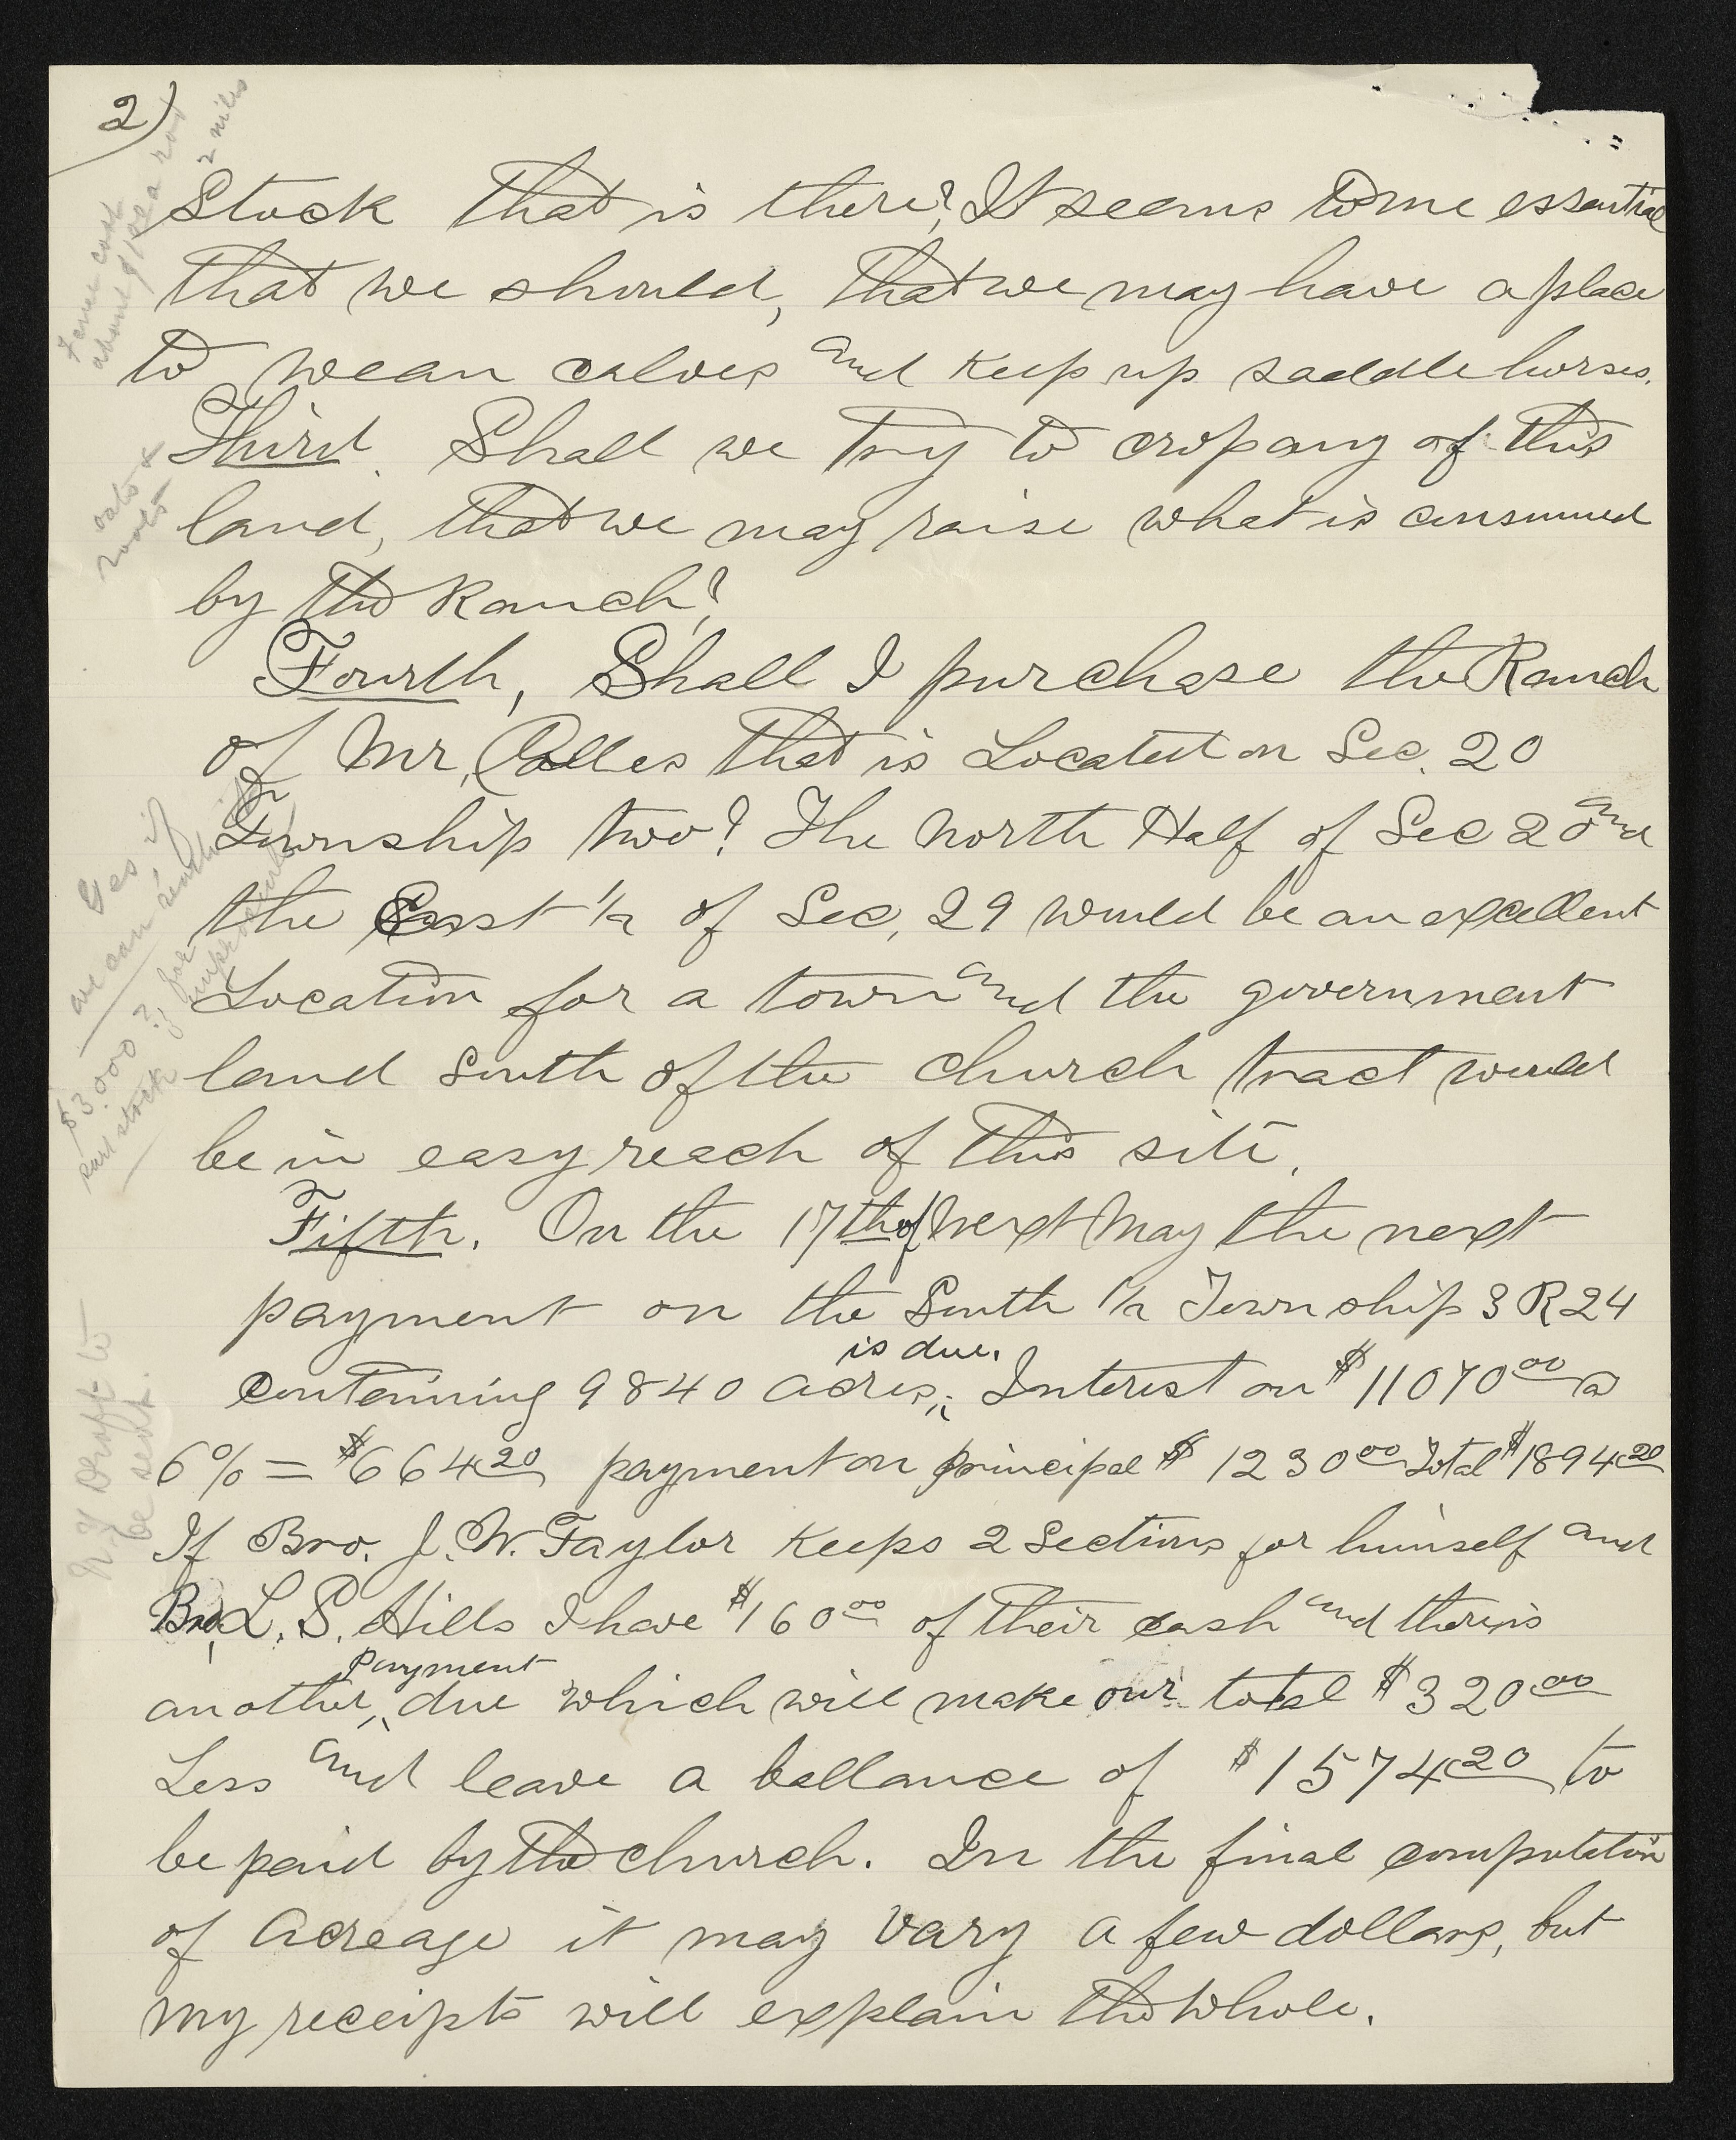 2)
Stock that is there? It seems to me essential
that we should, that we may have a place
to wean calves and keep up saddle horses.
Third. Shall we try to crop any of this
land, that we may raise what is consumed
by the Ranch?
Fourth, Shall I purchase the Ranch
of Mr, that is Located on Sec. 20
Township two? The North Half of Sec 20 and
the East ½ of Sec, 29 would be an excellent
Location for a town and the government
land South of the church tract would
be in easy reach of this site.
Fifth. On the 17th of Next May the next
payment on the South ½ Township 3 R 24
is due.
containing 9840 acres, Interest on $11070.00 @
6% = $664.20 payment on principal $1230.00 Total $1894.20
If Bro. J. W. Taylor Keeps 2 Sections for himself and
Bro. L. S. Hills I have $160.00 of their cash and there is
payment
another, due which will make our total $320.00
Less and leave a ballance of $1574.20 to
be paid by the church. In the final computation
of Acreage it may vary a few dollars, but
my receipts will explain the whole.
Fence cost
about $ a rod
2 miles
oats &
roots
Yes if
we can
$3.000? for
stock
N. Y Draft to
be sent.